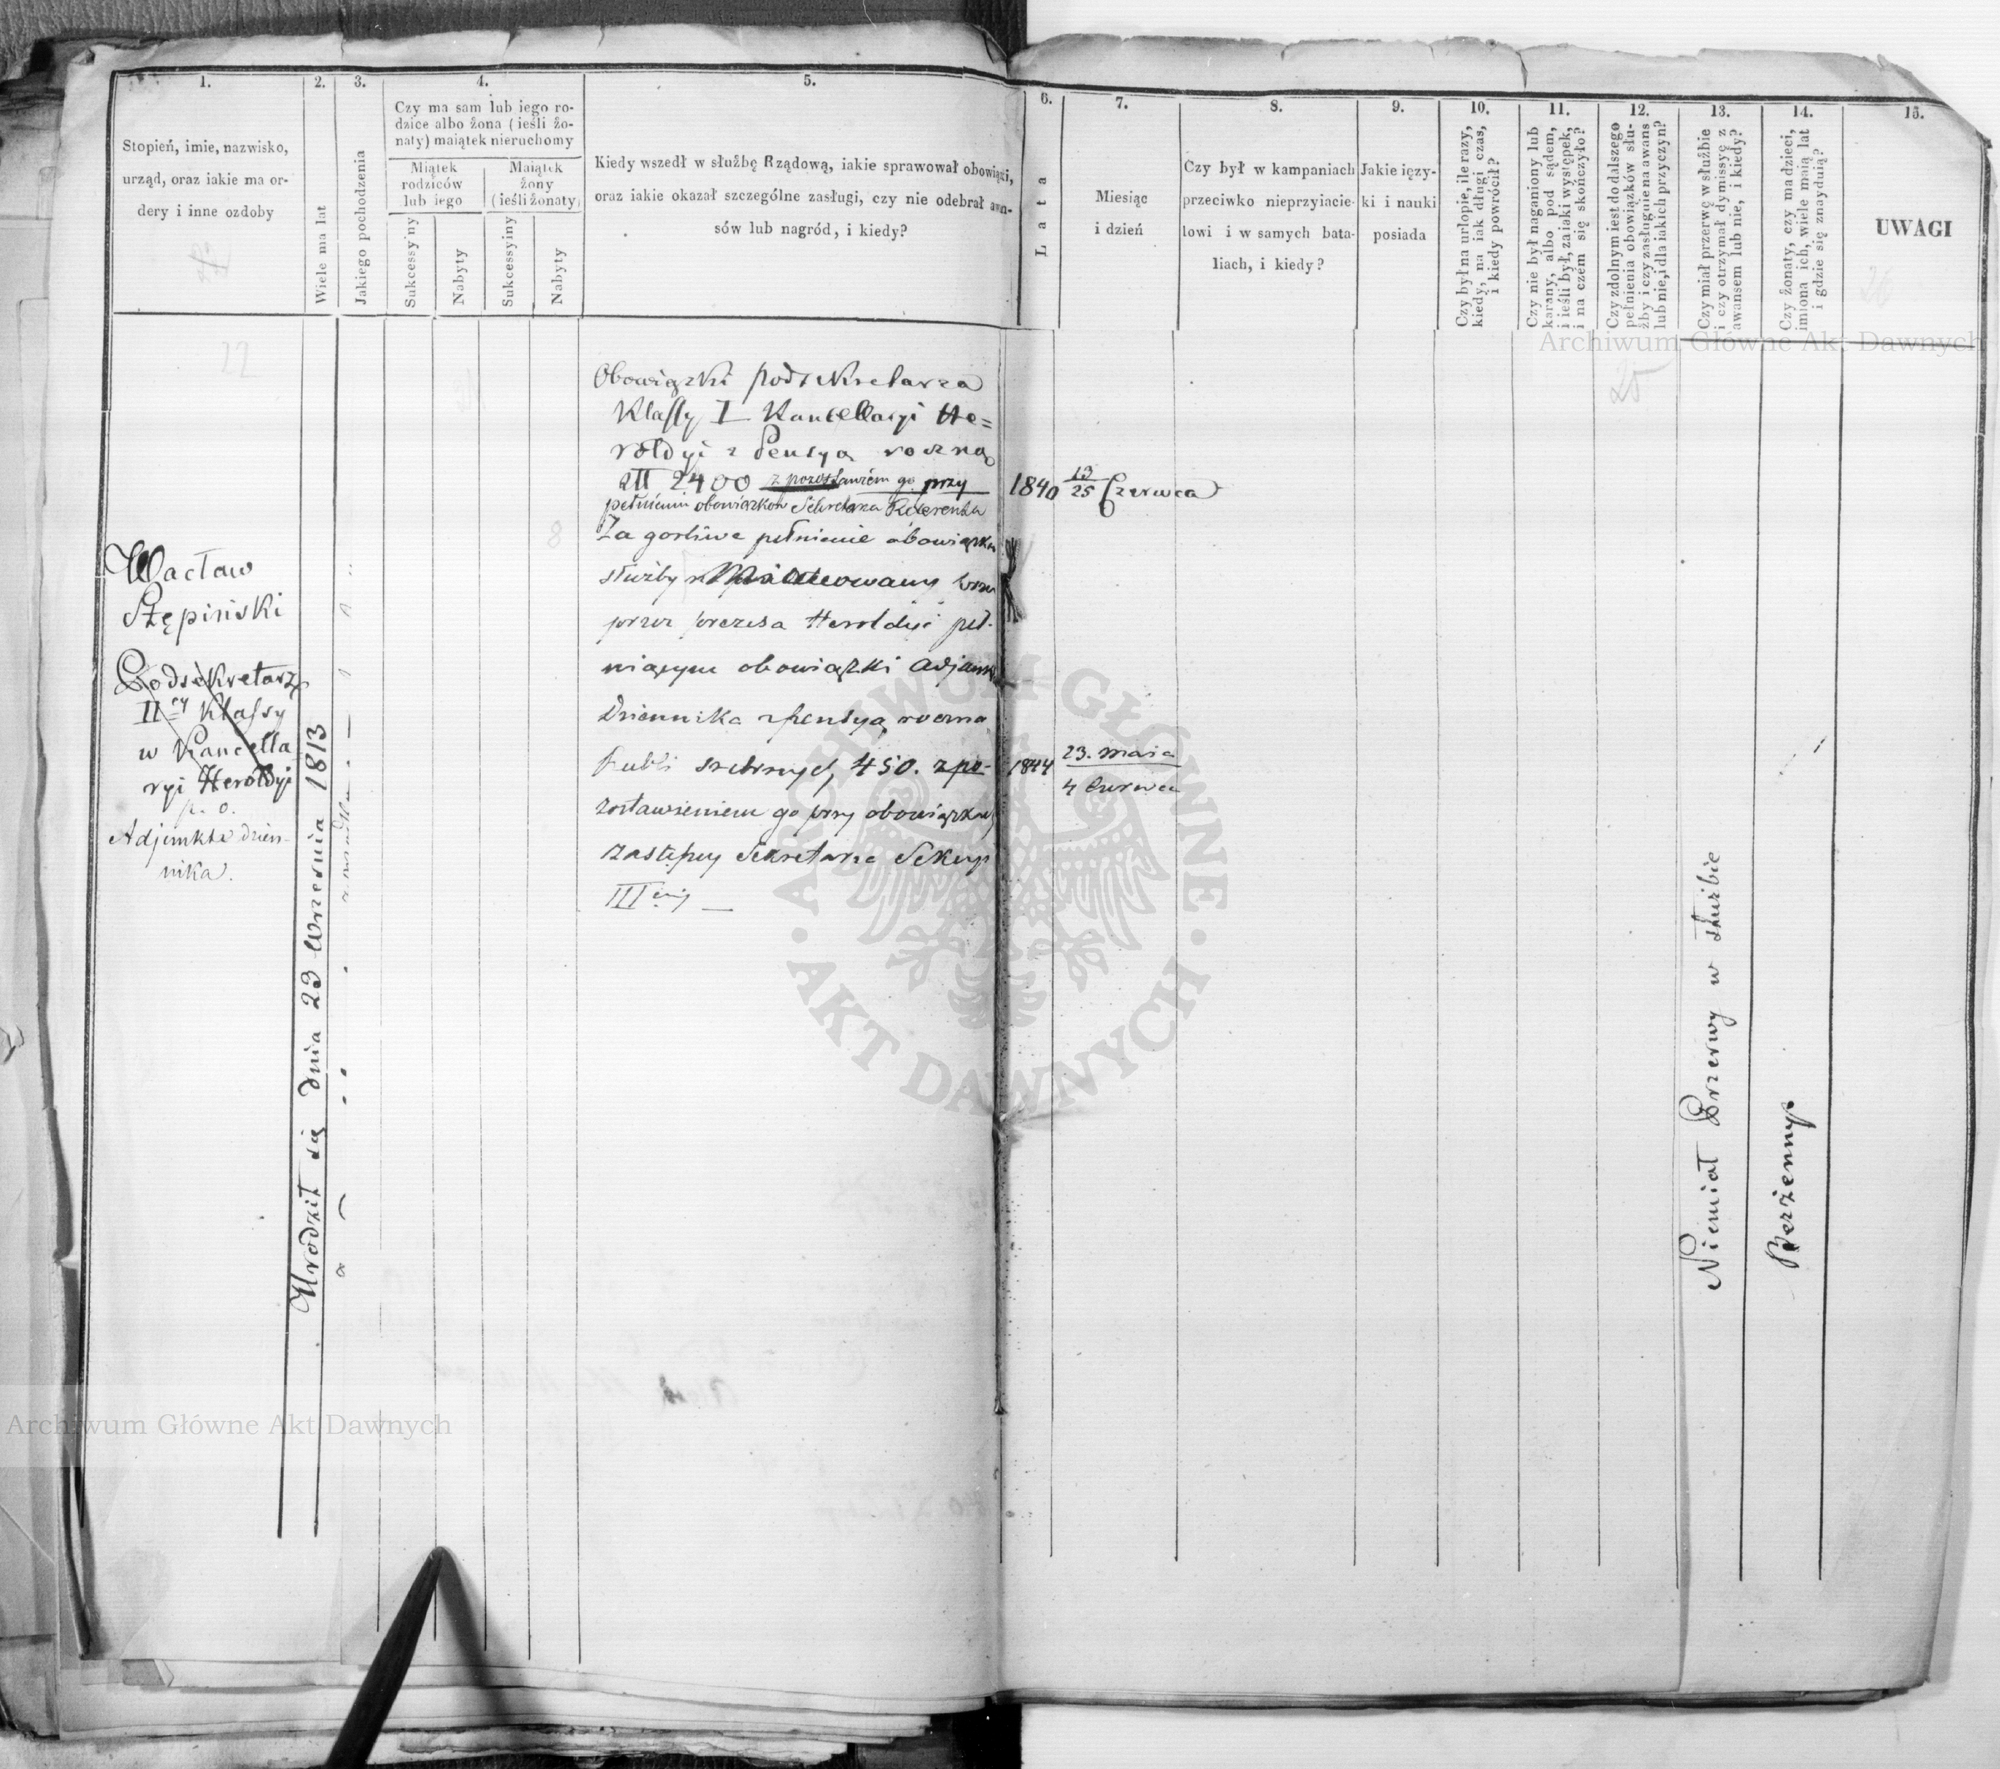 1.
Stopień, imie, nazwisko,
urząd, oraz iakie ma or-
dery i inne ozdoby
2.
Wiele ma lat
3.
Jakiego pochodzenia
4.
Czy ma sam lub iego ro-
dzice albo żona (ieśli żo-
naty) maiątek nieruchomy
Miątek
rodziców
lub iego
Maiątek
żony
(ieśli żonaty)
Sukcessyiny
Nabyty
Sukcessyiny
Nabyty
5.
Kiedy wszedł w służbę Rządową, iakie sprawował obowiązki,
oraz iakie okazał szczególne zasługi, czy nie odebrał awan-
sów lub nagród, i kiedy?
6.
Lata
7.
Miesiąc
i dzień
8.
Czy był w kampaniach
przeciwko nieprzyiacie-
lowi i w samych bata-
liach, i kiedy?
9.
Jakie ięzy-
ki i nauki
posiada
10.
Czy był na urlopie, ile razy,
kiedy, na iak długi czas,
i kiedy powrócił?
11.
Czy nie był naganiony lub
karany, albo pod sądem,
i ieśli był, za iaki występek,
i na czém się skończyło?
12.
Czy zdolnym iest do dalszego
pełnienia obowiązków słu-
żby i czy zasługuie na awans
lub nie, i dla iakich przyczyn?
13.
Czy miał przerwę w służbie
i czy otrzymał dymissyę z
awansem lub nie, i kiedy?
14.
Czy żonaty, czy ma dzieci,
imiona ich, wiele maią lat
i gdzie się znayduią?
15.
UWAGI
26
22
25
8
Wacław
Stępiński
Podsekretarz
II ey Klassy
w Kancella
ryi Heroldyi
p. o.
Adjunkta dzien-
nika.
Urodził się dnia 23 Września 1813
Obowiązki Podsekretarza
Klassy I Kancellaryi He=
roldyi z Pensyą roczną
zł 2400 z pozostawieniem go przy
pełnieniu obowiązków Sekretarza Referenta
1840 13/25 Czerwca
Za gorliwe pełnienie obowiązków
służby mianowany
przez prezesa Heroldyi peł-
niącym obowiązki Adjunkta
Dziennika z pensyą roczną
Rubli srebrnych 450. z po-
1844 23. maia
4 Czerwca
zostawieniem go przy obowiązkach
zastępcy Sekretarza Sekcyi
III ciej
Niemiał Przerwy w służbie
Bezżenny
Archiwum Główne Akt Dawnych
Archiwum Główne Akt Dawnych
ARCHIWUM GŁÓWNE
AKT DAWNYCH